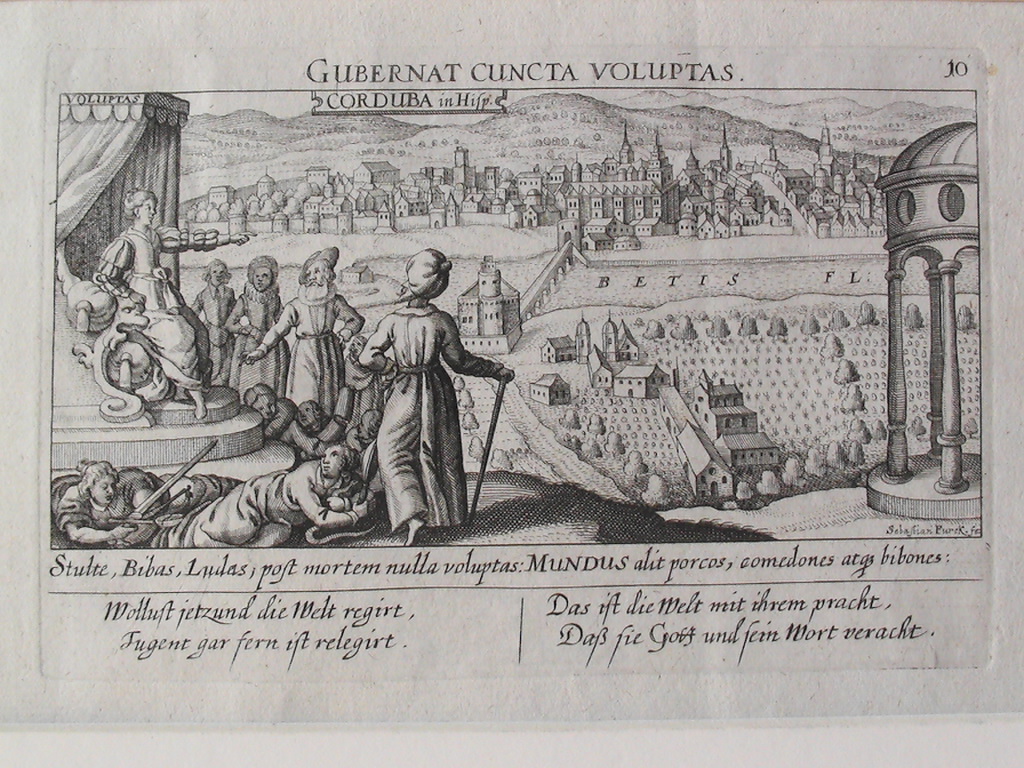 GUBERNAT CUNCTA VOLUPTAS.
10
VOLUPTAS
CORDUBA in Hisp.
BETIS FL.
Sebastian Furck. fe
Stulte, Bibas, Ludas, post mortem nulla voluptas: MUNDUS alit porcos, comedones atqz bibones:
Wollust jetzund die Welt regirt,
Tugent gar fern ist relegirt.
Das ist die Welt mit ihrem pracht,
Daß sie Gott und sein Wort veracht.